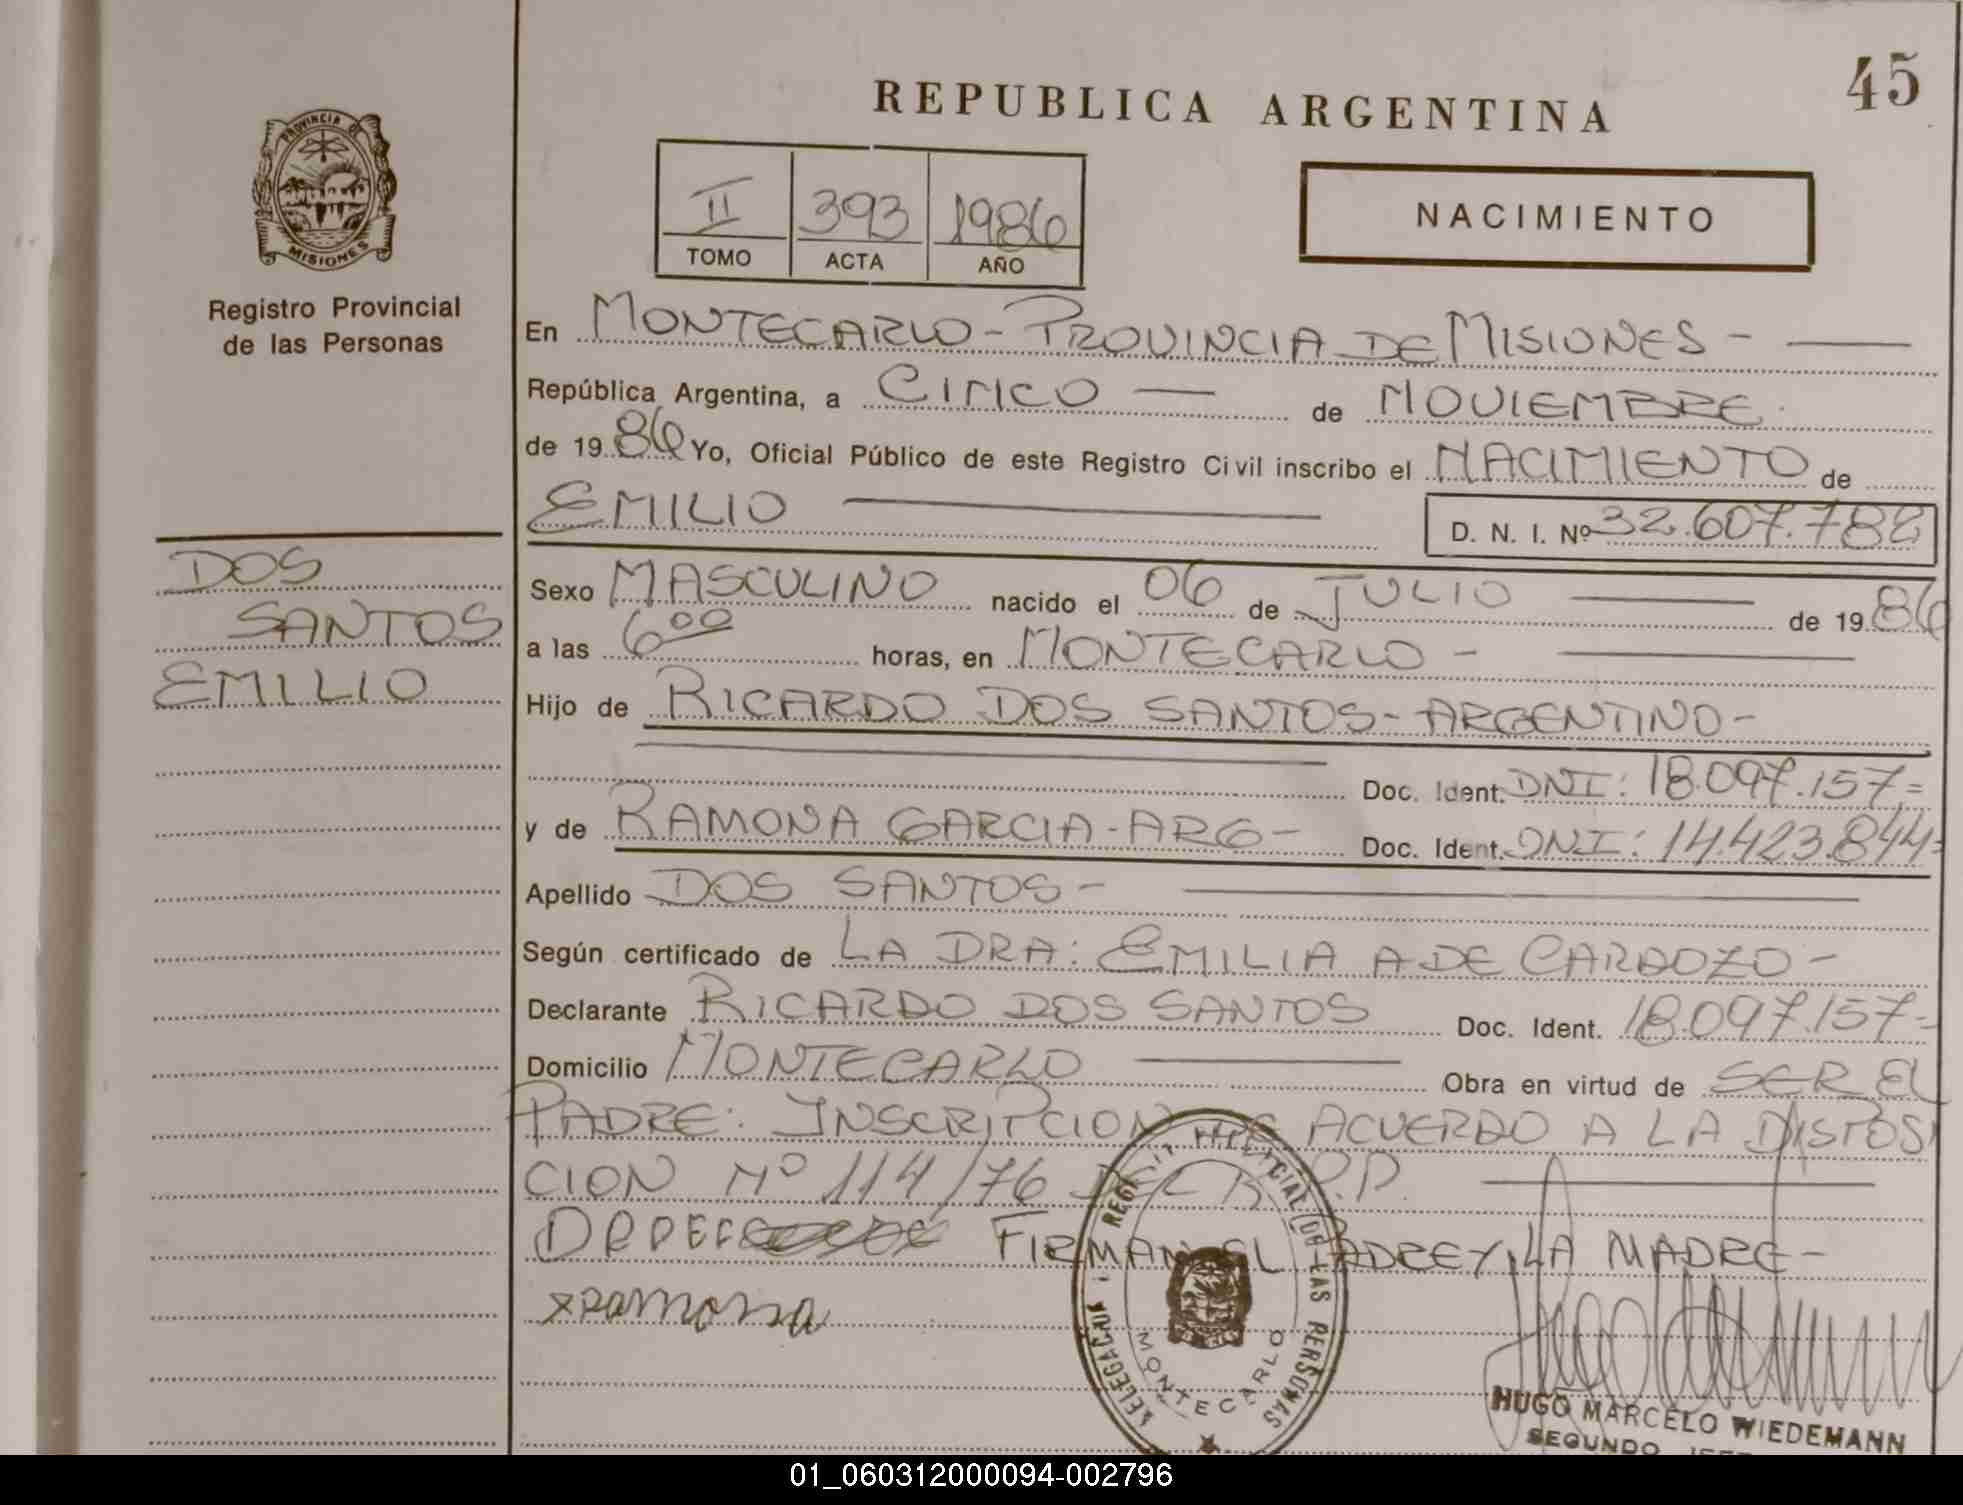 45
REPUBLICA ARGENTINA
PROVINCIA DE
MISIONES
Registro Provincial
de las Personas
II 393 1986
TOMO ACTA AÑO
NACIMIENTO
En MONTECARLO - PROVINCIA DE MISIONES -
República Argentina, a CINCO de NOVIEMBRE
de 1986 Yo, Oficial Público de este Registro Civil inscribo el NACIMIENTO de
EMILIO D. N. I. Nº 32.607.782
DOS
SANTOS
EMILIO
Sexo MASCULINO nacido el 06 de JULIO de 1986
a las 6 00 horas, en MONTECARLO -
Hijo de RICARDO DOS SANTOS - ARGENTINO -
Doc. Ident. DNI: 18.097.157.=
y de RAMONA GARCIA - ARG - Doc. Ident. DNI: 14.423.844=
Apellido DOS SANTOS -
Según certificado de LA DRA: EMILIA A DE CARDOZO -
Declarante RICARDO DOS SANTOS Doc. Ident. 18.097.157-
Domicilio MONTECARLO Obra en virtud de SER EL
PADRE: INSCRIPCION DE ACUERDO A LA DISPOSI
CION Nº 114/76 DEL R.P.P.
FIRMAN EL PADRE Y LA MADRE -
x Ramona
DELEGACION REGISTRO PROVINCIAL DE LAS PERSONAS
MONTECARLO
HUGO MARCELO WIEDEMANN
SEGUNDO JEFE
01_060312000094-002796